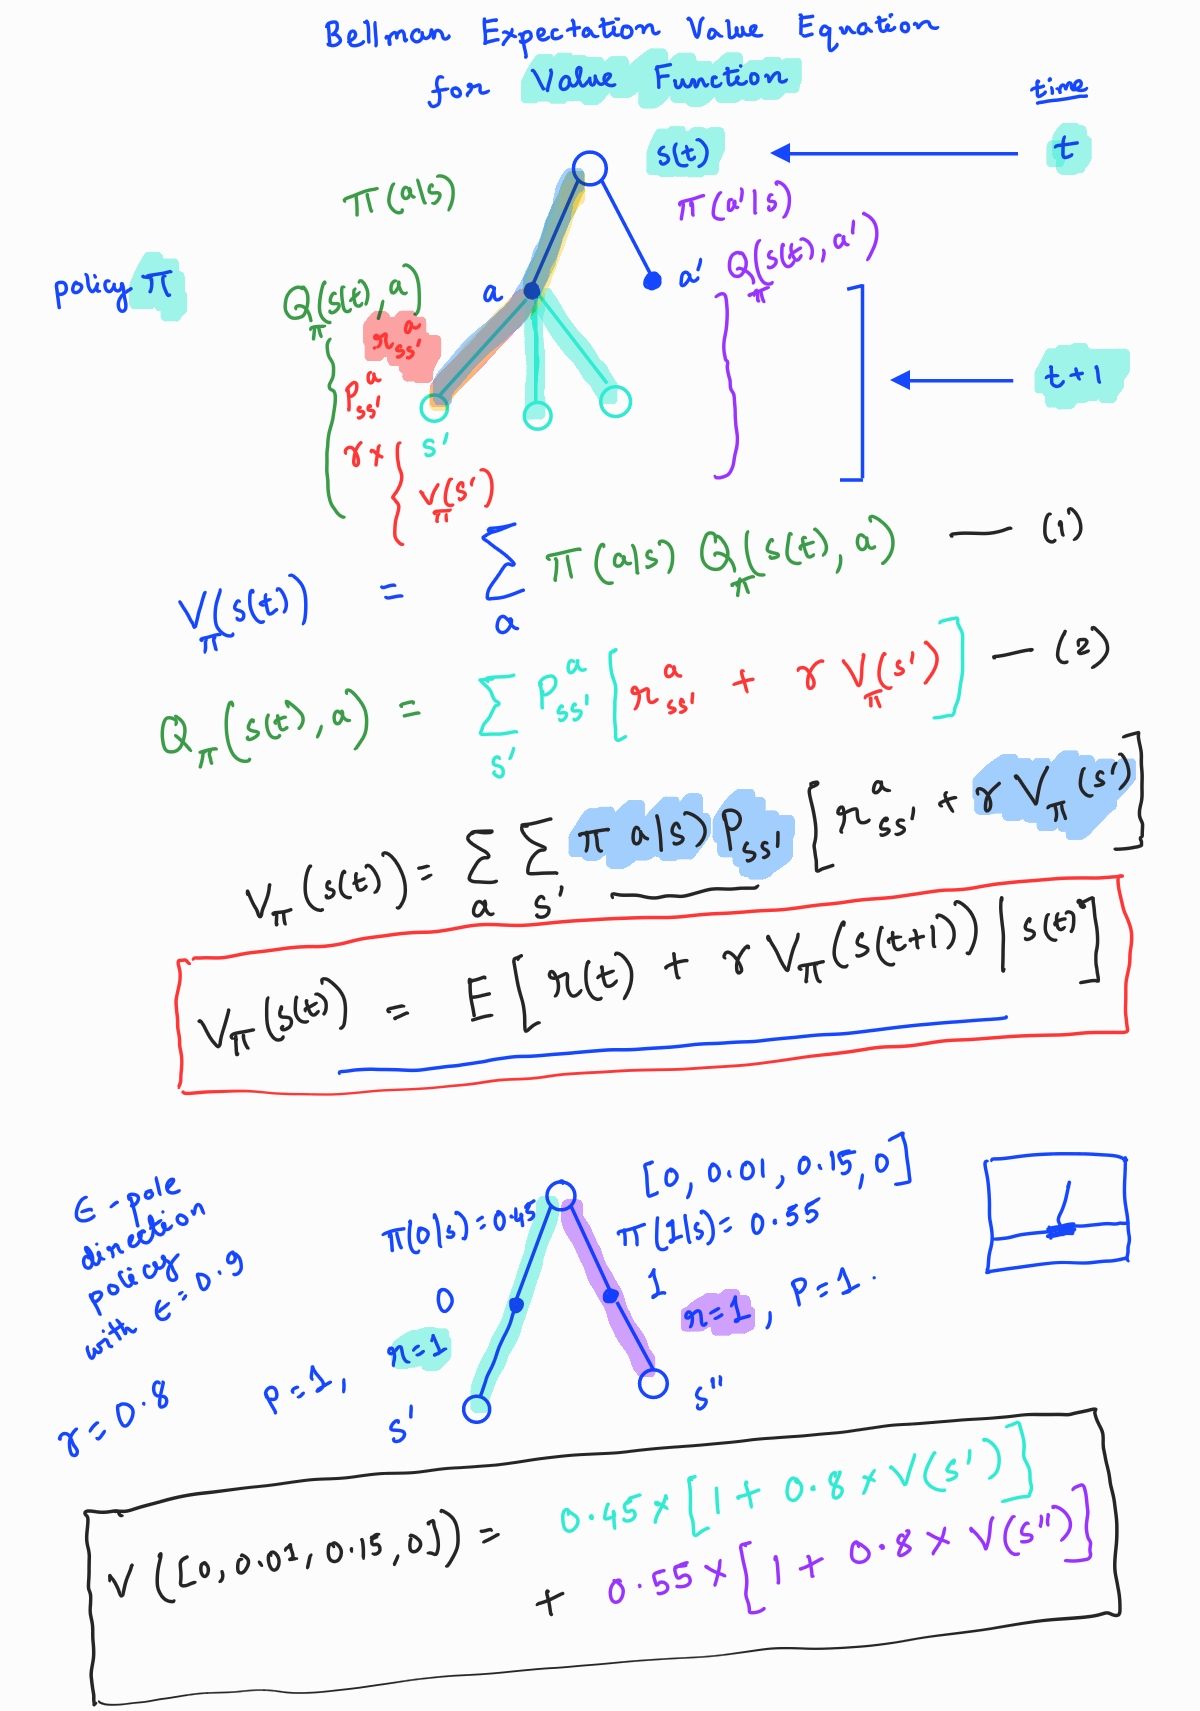 Bellman Expectation Value Equation
for Value Function
time
s(t)
t
π(a|s)
π(a'|s)
policy π
Q_π(s(t), a)
a
a'
Q_π(s(t), a')
r^a_ss'
P^a_ss'
t+1
γ ×
s'
V_π(s')
V_π(s(t)) = Σ_a π(a|s) Q_π(s(t), a) — (1)
Q_π(s(t), a) = Σ_s' P^a_ss' [r^a_ss' + γ V_π(s')] — (2)
V_π(s(t)) = Σ_a Σ_s' π a|s) P_ss' [r^a_ss' + γ V_π(s')]
V_π(s(t)) = E[r(t) + γ V_π(s(t+1)) | s(t)]
ϵ-pole
direction
policy
with ϵ=0.9
γ=0.8
[0, 0.01, 0.15, 0]
π(0|s)=0.45
π(1|s)=0.55
0
1
r=1, P=1.
P=1, r=1
s'
s''
V([0, 0.01, 0.15, 0]) = 0.45×[1 + 0.8 × V(s')]
+ 0.55×[1 + 0.8 × V(s'')]